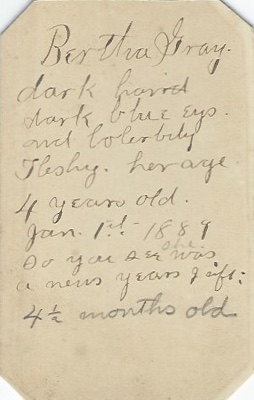 Bertha Gray.
dark haird
dark blue eys.
and tolerbily
fleshy. her age
4 years old.
Jan. 1st 1889
So you see she was
a news years gift:
4½ months old